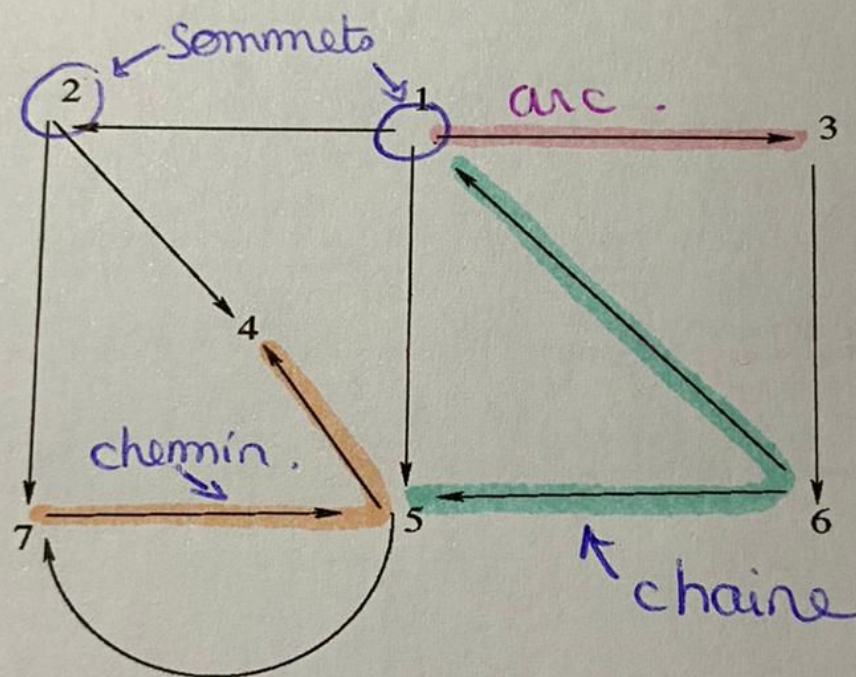 Sommets
2
1
arc.
3
4
chemin.
7
5
6
chaine